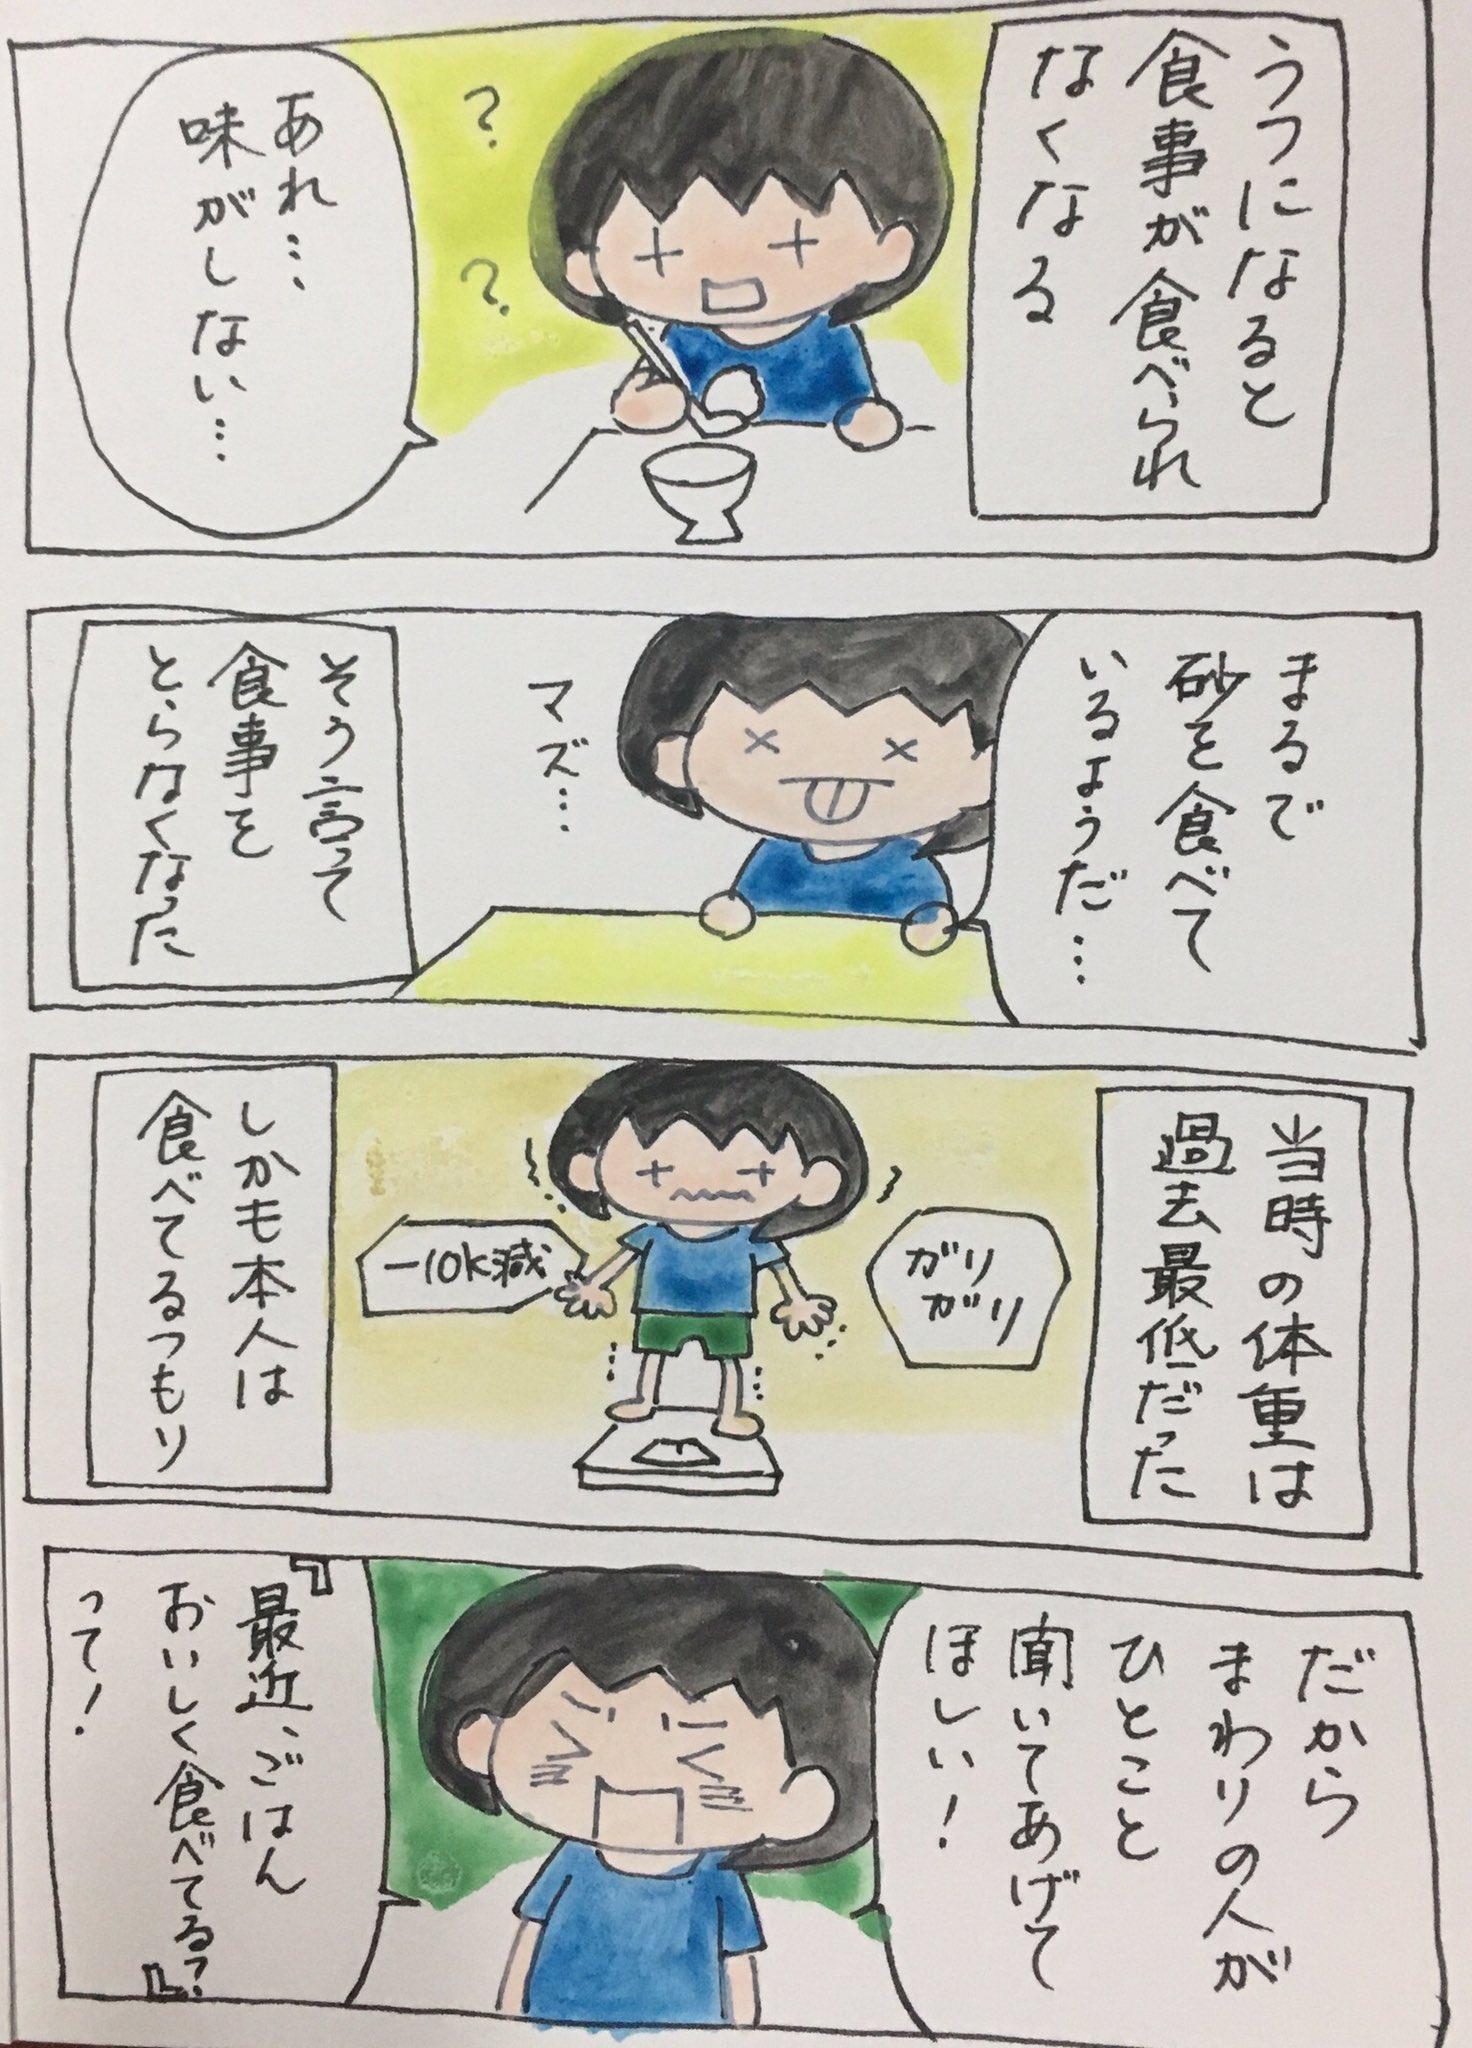 うつになると
食事が食べられ
なくなる
?
?
あれ…
味がしない…
まるで
砂を食べて
いるようだ…
マズ…
そう言って
食事を
とらなくなった
当時の体重は
過去最低だった
ガリ
ガリ
-10k減
しかも本人は
食べてるつもり
だから
まわりの人が
ひとこと
聞いてあげて
ほしい!
『最近、ごはん
おいしく食べてる?』
って!